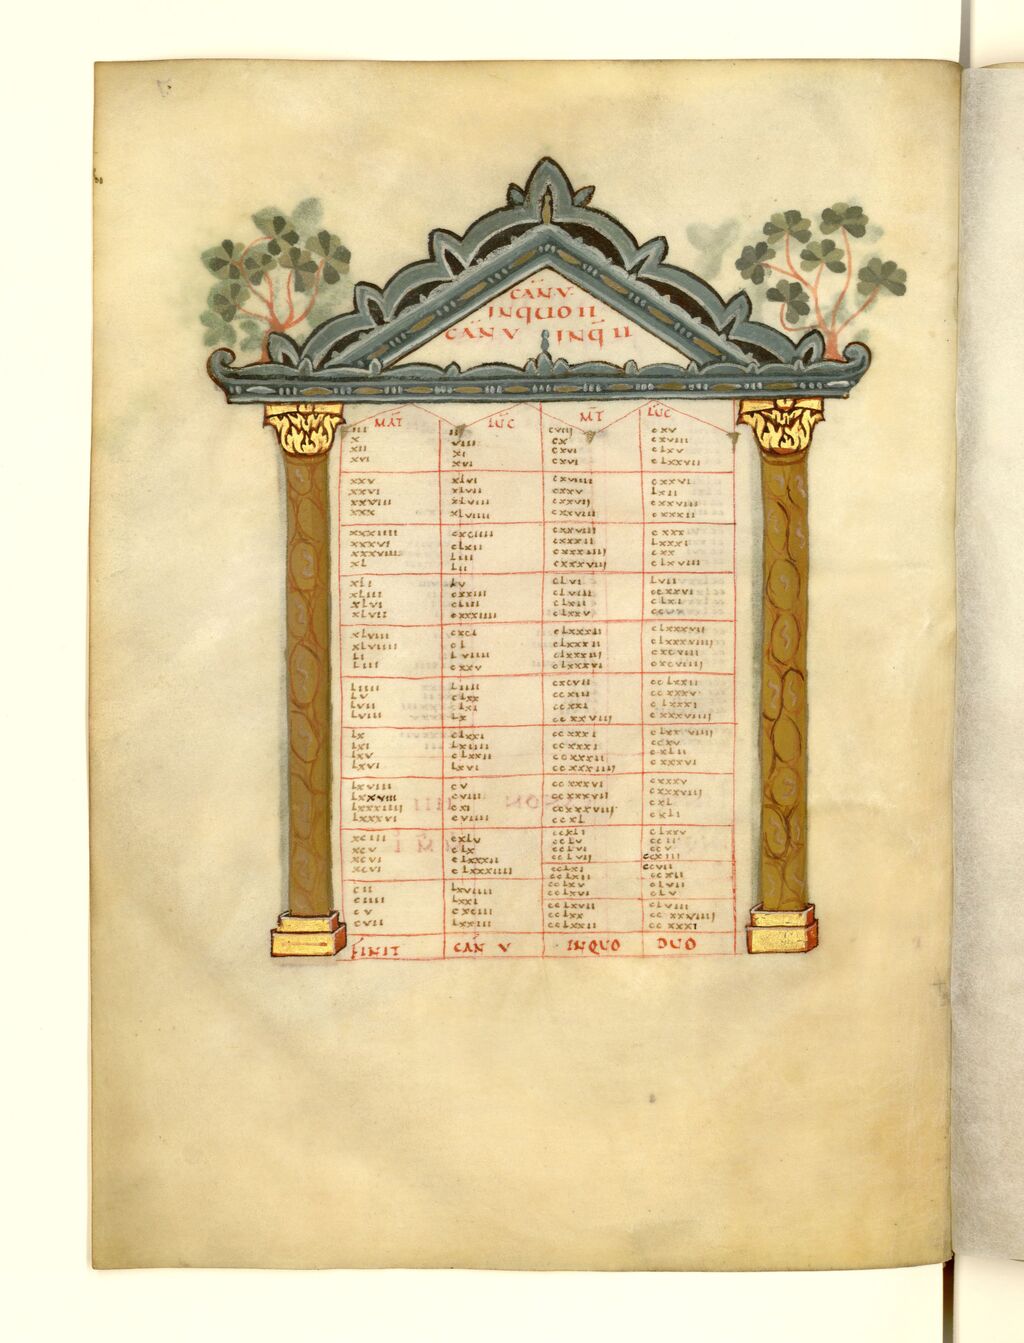 CAN V
IN QUO II
CAN V IN Q II
MAT LUC MT LUC
iii ii cviii cxv
x viiii cx cxviii
xii xi cxvi clxv
xvi xvi cxvi clxxvii
xxv xlvi cxviiii cxxvi
xxvi xlvii cxxv lxii
xxviii xlviii cxxvii cxxviii
xxx xlviiii cxxviii cxxxii
xxxiiii cxciiii cxxviiii cxxx
xxxvi clxii cxxxii lxxxi
xxxviii liii cxxxiiii cxx
xl lii cxxxviii clxviii
xli lv clvi lvii
xliii cxxiii clviii ccxxvi
xlvi cliii clxii clxi
xlvii cxxxiiii clxxv
xlviii cxci clxxxii clxxxvii
xlviiii cl clxxxiii clxxxviiii
li lviiii clxxxiii cxcviii
liii cxxv clxxxvi cxcviiii
liiii liiii cxcvii cclxxii
lv clxx ccxiii ccxxxv
lvii lxi ccxxi clxxxi
lviii lx ccxxviii cxxxviiii
lx clxxi ccxxxi clxxviiii
lxi lxiiii ccxxxi ccxv
lxv clxxii ccxxxii cxlii
lxvi lxvi ccxxxiiii cxxxvi
lxviii cv ccxxxvi cxxxv
lxxviii cviii ccxxxvii cxxxviii
lxxxiiii cxi ccxxxviii cxl
lxxxvi cviiii ccxl cxli
xciii cxlv ccxli clxxv
xcv clx cclv ccii
xcvi clxxxii cclvi ccv
xcvi clxxxiiii cclvii ccxiii
cclxi ccvii
cclxii ccxii
cii lxviiii cclxv clvii
ciiii lxxi cclxvi clv
cv cxciii cclxvii clviii
cvii lxxiii cclxx ccxxviiii
cclxxii ccxxxi
FINIT CAN V IN QUO DUO